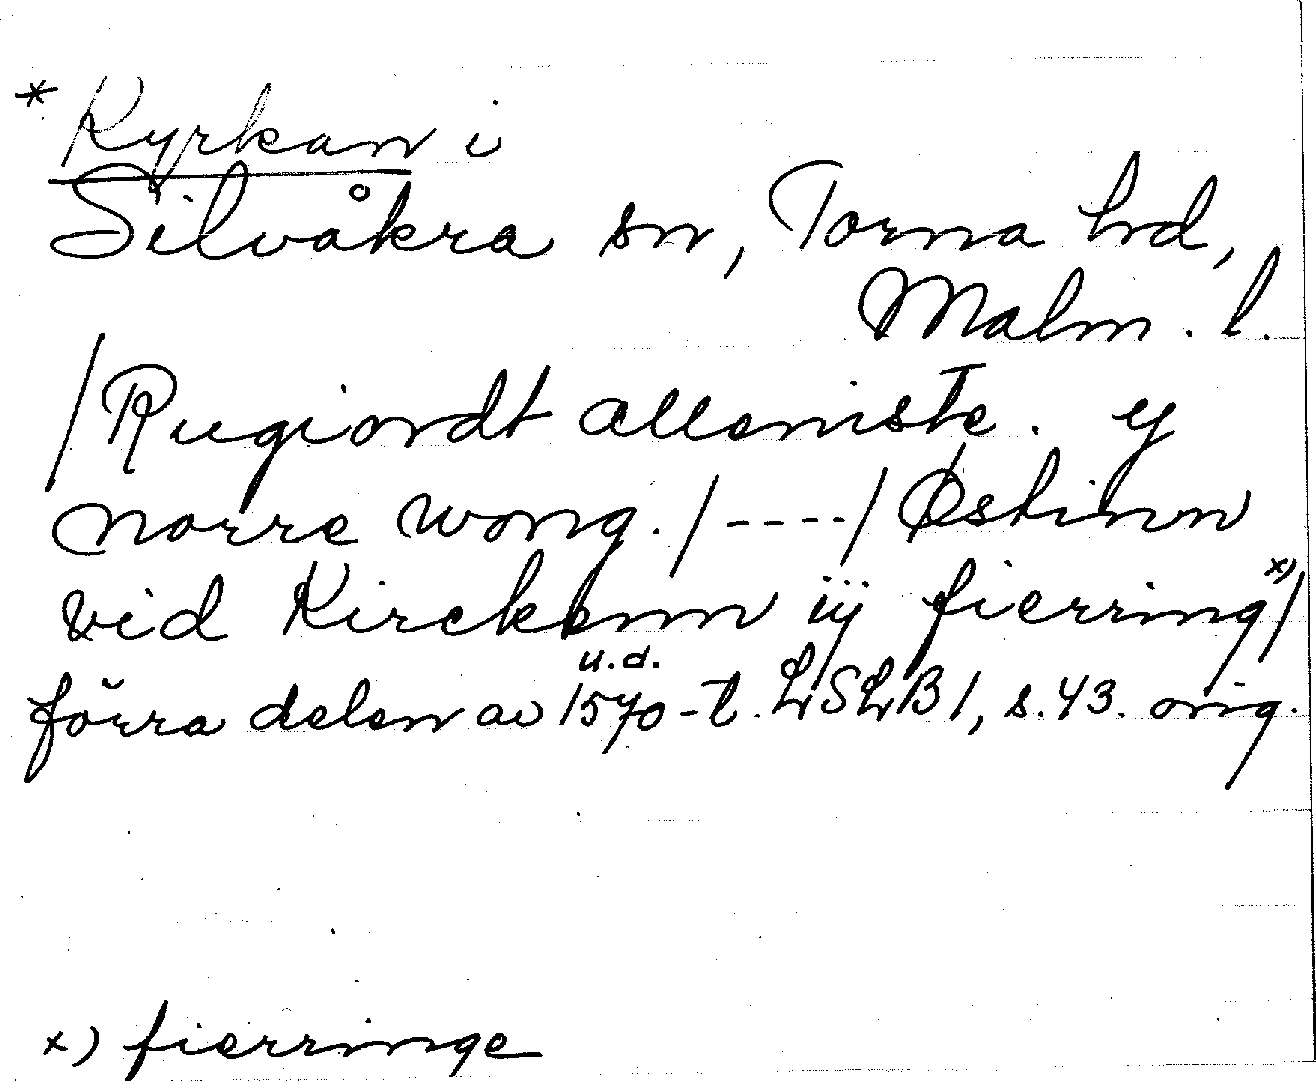 * Kyrkan i
Silvåkra sn, Torna hd,
Malm. l.
/Rugiordt allemste. y
norre wong./----/Østinn
vid Kirckenn iij fierring x)/
u.d.
förra delen av 1570-t. LSLB1, s.43. orig.
x) fierringe